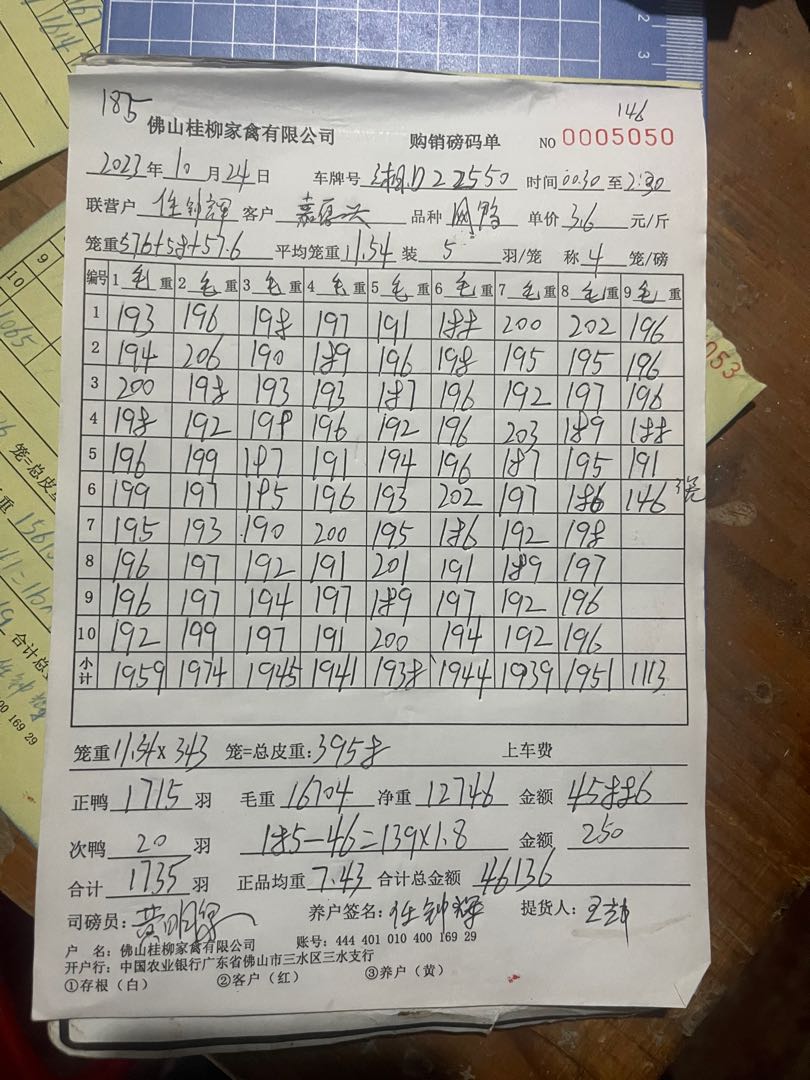 185 146
佛山桂柳家禽有限公司 购销磅码单 NO 0005050
2023年10月24日 车牌号 湘D22550 时间 00:30 至 2:30
联营户 任钟辉 客户 嘉 兴 品种 鸭 单价 3.6 元/斤
笼重 576+58+57.6 平均笼重 11.54 装 5 羽/笼 称 4 笼/磅
编号 1 毛 重 2 毛 重 3 毛 重 4 毛 重 5 毛 重 6 毛 重 7 毛 重 8 毛 重 9 毛 重
1 193 196 198 197 191 188 200 202 196
2 194 206 190 189 196 198 195 195 196
3 200 198 193 193 187 196 192 197 196
4 198 192 199 196 192 196 203 189 188
5 196 199 187 191 194 196 187 195 191
6 199 197 185 196 193 202 197 186 146 3笼
7 195 193 190 200 195 186 192 198
8 196 197 192 191 201 191 189 197
9 196 197 194 197 189 197 192 196
10 192 199 197 191 200 194 192 196
小计 1959 1974 1945 1941 1938 1944 1939 1951 1113
笼重 11.54×343 笼=总皮重: 3958 上车费
正鸭 1715 羽 毛重 16704 净重 12746 金额 45886
次鸭 20 羽 185-46=139×1.8 金额 250
合计 1735 羽 正品均重 7.43 合计总金额 46136
司磅员: 黄明 养户签名: 任钟辉 提货人: 王
户 名: 佛山桂柳家禽有限公司 账号: 444 401 010 400 169 29
开户行: 中国农业银行广东省佛山市三水区三水支行
①存根(白) ②客户(红) ③养户(黄)